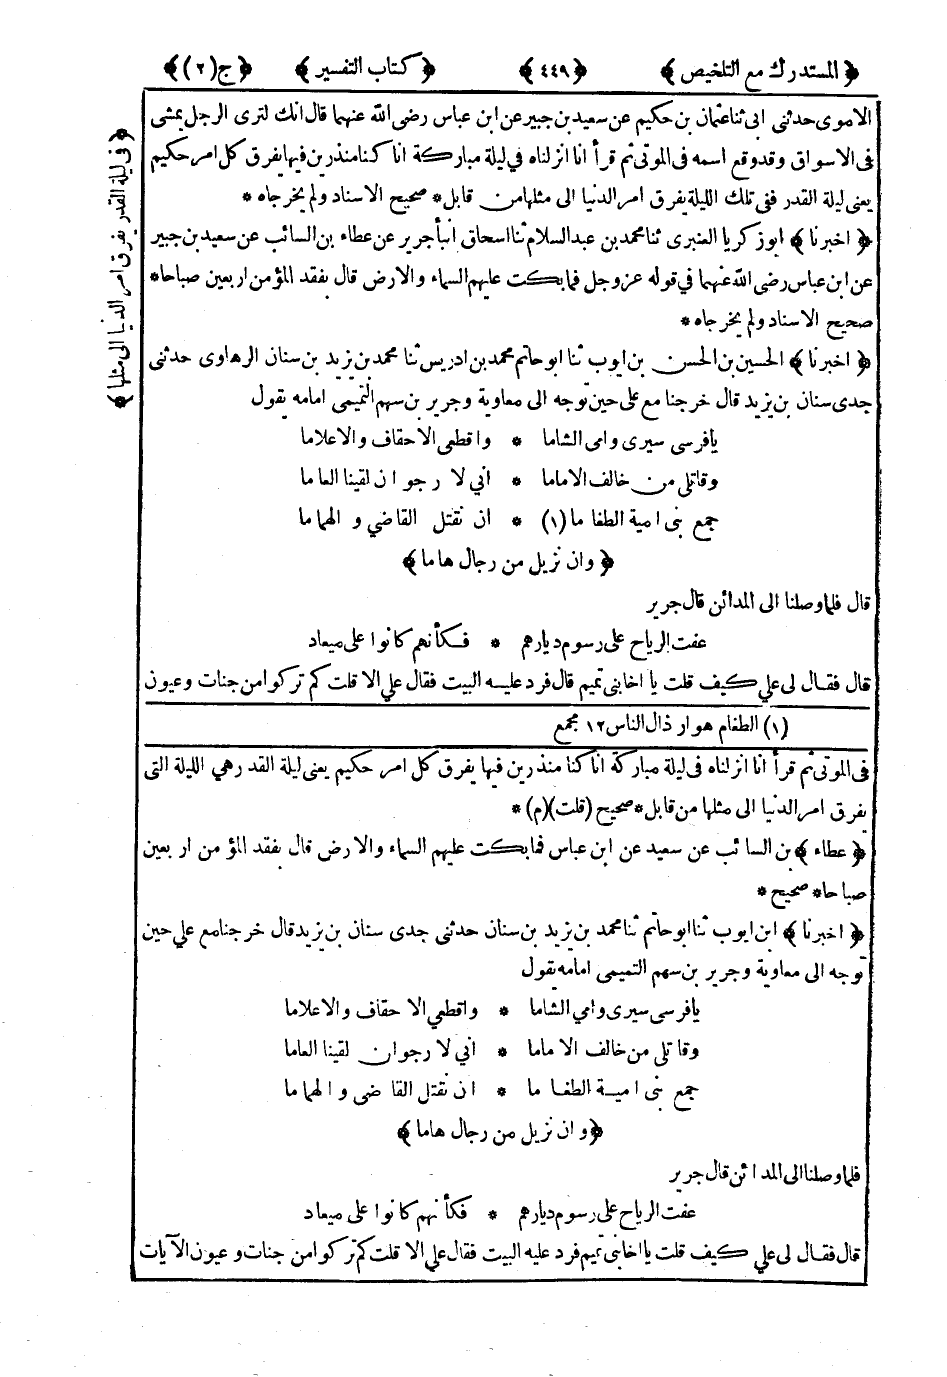 ﴿ المستدرك مع التلخيص ﴾ ﴿ ٤٤٩ ﴾ ﴿ كتاب التفسير ﴾ ﴿ ج(٢) ﴾
الاموى حدثنى ابى ثنا عثمان بن حكيم عن سعيد بن جبير عن ابن عباس رضى الله عنهما قال انك لترى الرجل يمشى
فى الاسواق وقد وقع اسمه فى الموتى ثم قرأ انا انزلناه فى ليلة مباركة انا كنا منذرين فيها يفرق كل امر حكيم
يعنى ليلة القدر ففى تلك الليلة يفرق امر الدنيا الى مثلها من قابل * صحيح الاسناد ولم يخرجاه *
﴿ اخبرنا ﴾ ابو زكريا العنبرى ثنا محمد بن عبد السلام ثنا اسحاق انبأ جرير عن عطاء بن السائب عن سعيد بن جبير
عن ابن عباس رضى الله عنهما فى قوله عز وجل فما بكت عليهم السماء والارض قال بفقد المؤمن اربعين صباحا *
صحيح الاسناد ولم يخرجاه *
﴿ اخبرنا ﴾ الحسين بن الحسن بن ايوب ثنا ابو حاتم محمد بن ادريس ثنا محمد بن يزيد بن سنان الرهاوى حدثنى
جدى سنان بن يزيد قال خرجنا مع على حين توجه الى معاوية وجرير بن سهم التميمى امامه يقول
يا فرسى سيرى وامى الشاما * واقطعى الاحقاف والاعلاما
وقاتلى من خالف الاماما * انى لارجو ان لقينا العاما
جمع بنى امية الطغاما (١) * ان نقتل القاضي والهماما
﴿ وان نزيل من رجال هاما ﴾
قال فلما وصلنا الى المدائن قال جرير
عفت الرياح على رسوم ديارهم * فكأنهم كانوا على ميعاد
قال فقال لى علي كيف قلت يا اخا بنى تميم قال فرد عليه البيت فقال علي الا قلت كم تركوا من جنات وعيون
(١) الطغام هو ارذال الناس ١٢ مجمع
فى الموتى ثم قرأ انا انزلناه فى ليلة مباركة انا كنا منذرين فيها يفرق كل امر حكيم يعنى ليلة القدر هي الليلة التى
يفرق امر الدنيا الى مثلها من قابل * صحيح (قلت) (م) *
﴿ عطاء ﴾ بن السائب عن سعيد عن ابن عباس فما بكت عليهم السماء والارض قال بفقد المؤمن اربعين
صباحا * صحيح *
﴿ اخبرنا ﴾ ابن ايوب ثنا ابو حاتم ثنا محمد بن يزيد بن سنان حدثنى جدى سنان بن يزيد قال خرجنا مع علي حين
توجه الى معاوية وجرير بن سهم التميمى امامه يقول
يا فرسى سيرى وامي الشاما * واقطعي الاحقاف والاعلاما
وقاتلى من خالف الاماما * اني لارجو ان لقينا العاما
جمع بنى امية الطغاما * ان نقتل القاضى والهماما
﴿ وان نزيل من رجال هاما ﴾
فلما وصلنا الى المدائن قال جرير
عفت الرياح على رسوم ديارهم * فكأنهم كانوا على ميعاد
قال فقال لى علي كيف قلت يا اخا بنى تميم فرد عليه البيت فقال علي الا قلت كم تركوا من جنات وعيون الآيات
﴿ فى ليلة القدر يفرق امر الدنيا الى مثلها ﴾